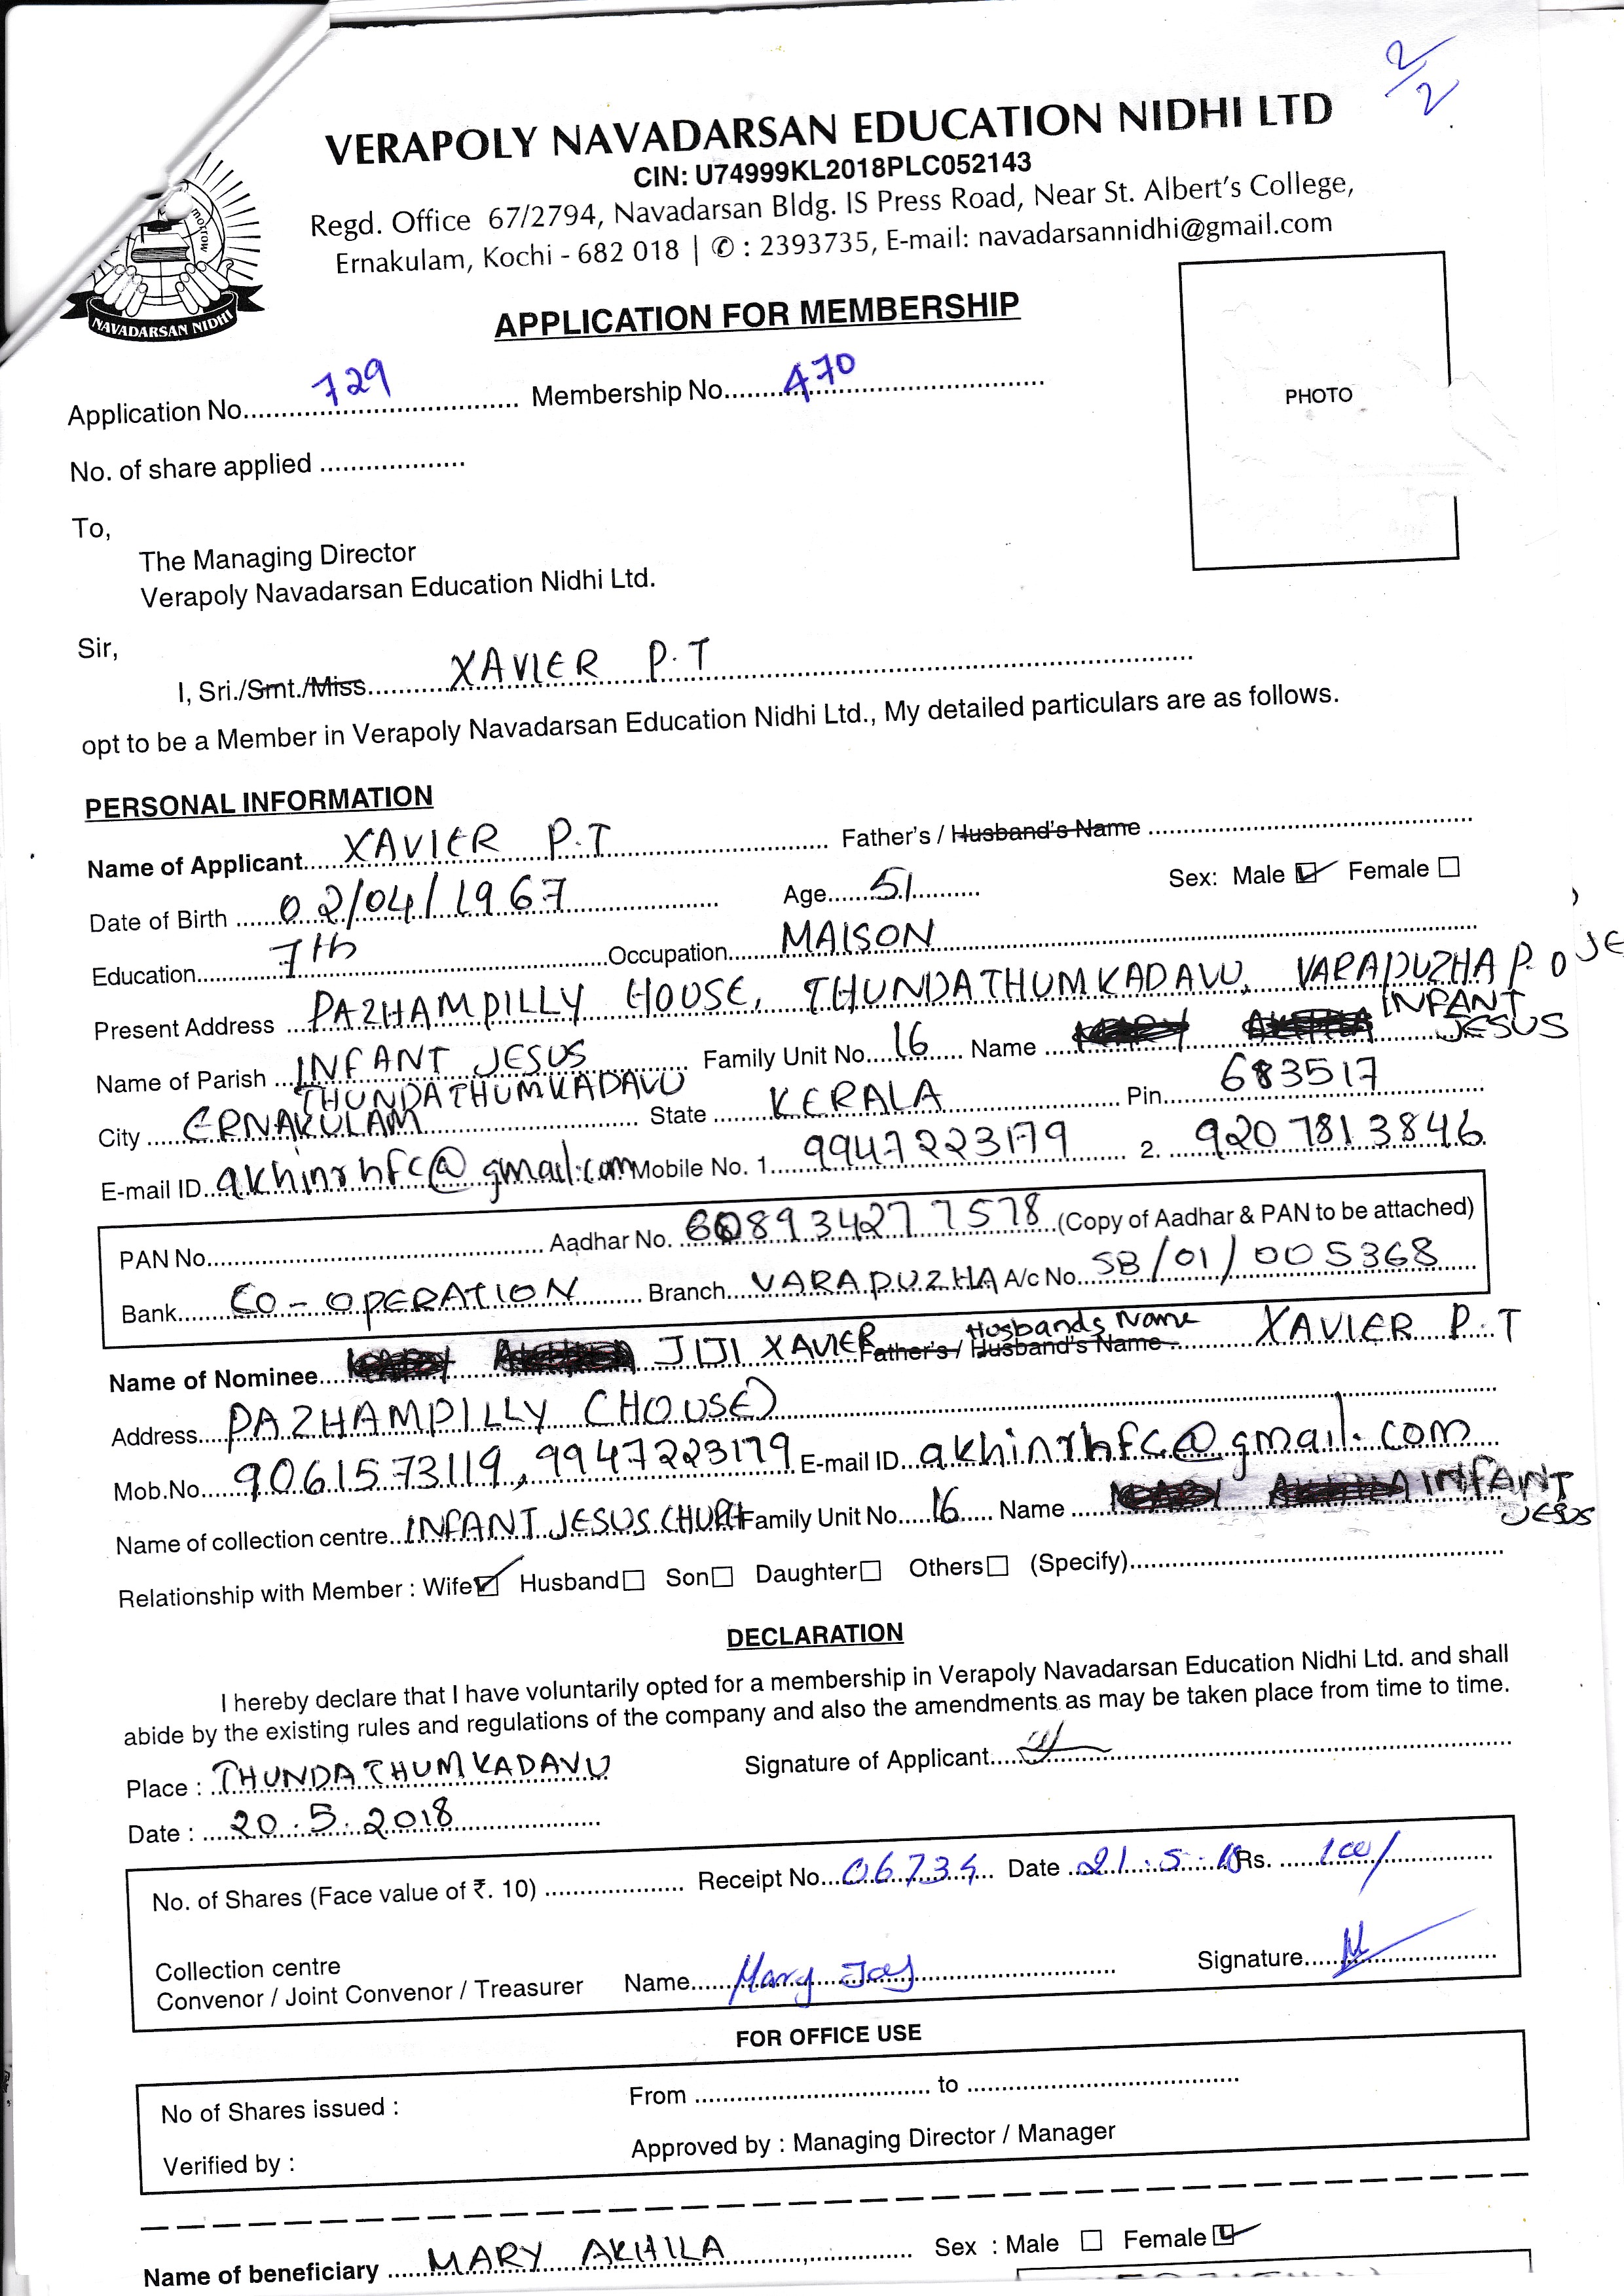 2/2
VERAPOLY NAVADARSAN EDUCATION NIDHI LTD
CIN: U74999KL2018PLC052143
Regd. Office 67/2794, Navadarsan Bldg. IS Press Road, Near St. Albert's College,
Ernakulam, Kochi - 682 018 | ✆ : 2393735, E-mail: navadarsannidhi@gmail.com
morrow
NAVADARSAN NIDHI
APPLICATION FOR MEMBERSHIP
PHOTO
Application No. 729 Membership No. 470
No. of share applied
To,
The Managing Director
Verapoly Navadarsan Education Nidhi Ltd.
Sir,
I, Sri./Smt./Miss XAVIER P.T
opt to be a Member in Verapoly Navadarsan Education Nidhi Ltd., My detailed particulars are as follows.
PERSONAL INFORMATION
Name of Applicant XAVIER P.T Father's / Husband's Name
Date of Birth 02/04/1967 Age 51 Sex: Male ☑ Female ☐
Education 7th Occupation MAISON
Present Address PAZHAMPILLY HOUSE, THUNDATHUMKADAVU, VARAPUZHA P.O
Name of Parish INFANT JESUS THUNDATHUMKADAVU Family Unit No. 16 Name INFANT JESUS
City ERNAKULAM State KERALA Pin 683517
E-mail ID akhinrhfc@gmail.com Mobile No. 1. 9947223179 2. 9207813846
PAN No. Aadhar No. 608934277578 (Copy of Aadhar & PAN to be attached)
Bank CO-OPERATION Branch VARAPUZHA A/c No. SB/01/005368
Name of Nominee JIJI XAVIER Father's / Husband's Name Husbands Name XAVIER P.T
Address PAZHAMPILLY (HOUSE)
Mob.No. 9061573119, 9947223179 E-mail ID akhinrhfc@gmail.com
Name of collection centre INFANT JESUS Family Unit No. 16 Name INFANT JESUS
Relationship with Member : Wife ☑ Husband ☐ Son ☐ Daughter ☐ Others ☐ (Specify)
DECLARATION
I hereby declare that I have voluntarily opted for a membership in Verapoly Navadarsan Education Nidhi Ltd. and shall
abide by the existing rules and regulations of the company and also the amendments as may be taken place from time to time.
Place : THUNDATHUMKADAVU Signature of Applicant
Date : 20.5.2018
No. of Shares (Face value of ₹. 10) Receipt No. 06734 Date 21.5.18 Rs. 100/
Collection centre
Convenor / Joint Convenor / Treasurer Name Mary Joy Signature
FOR OFFICE USE
No of Shares issued : From to
Verified by : Approved by : Managing Director / Manager
Name of beneficiary MARY AKHILA Sex : Male ☐ Female ☑